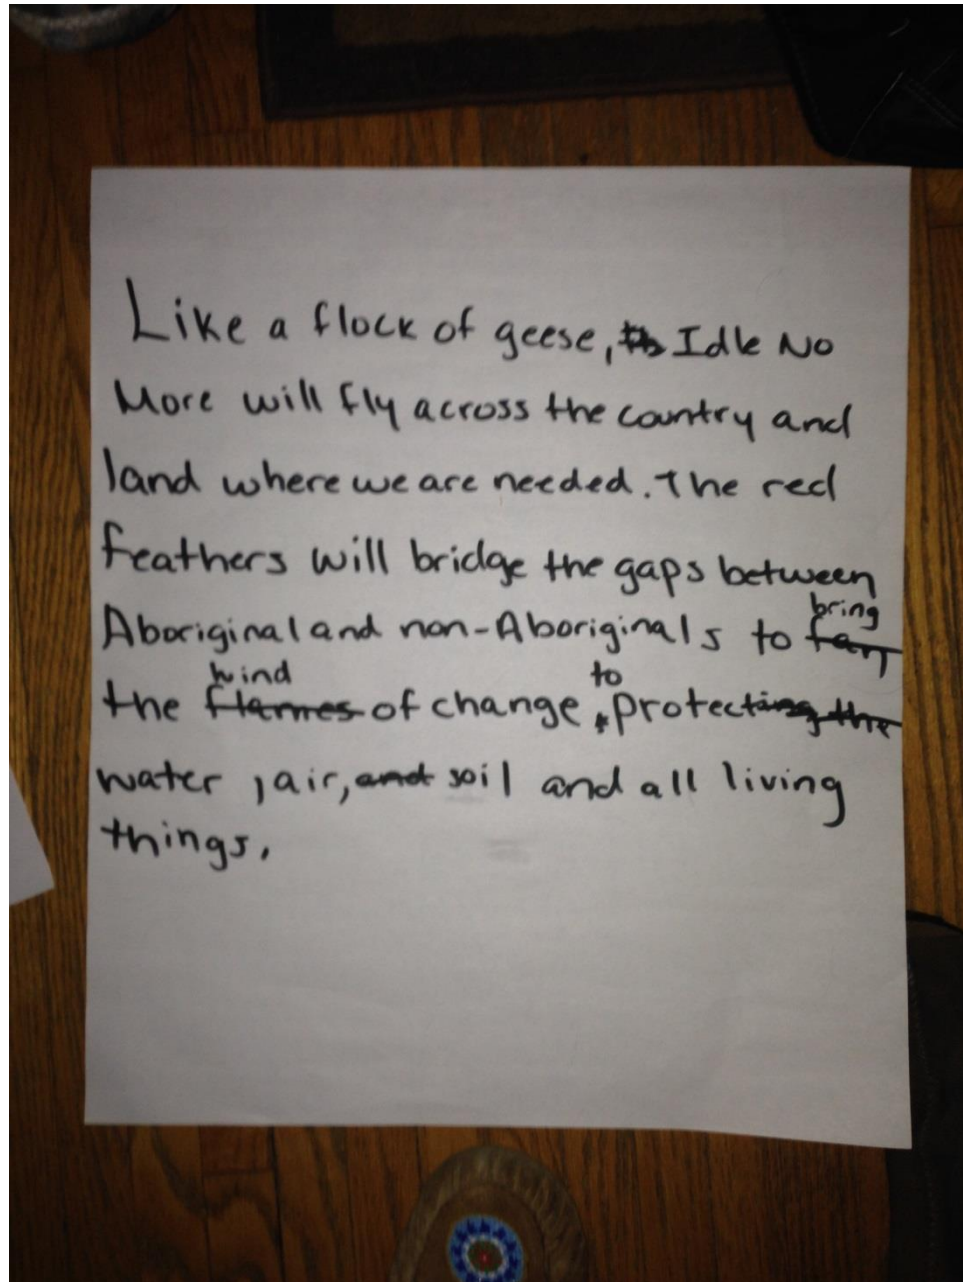 Like a flock of geese, Idle No
More will fly across the country and
land where we are needed. The red
feathers will bridge the gaps between
bring
Aboriginal and non-Aboriginals to fan
wind to
the flames of change protecting the
water, air, and soil and all living
things.